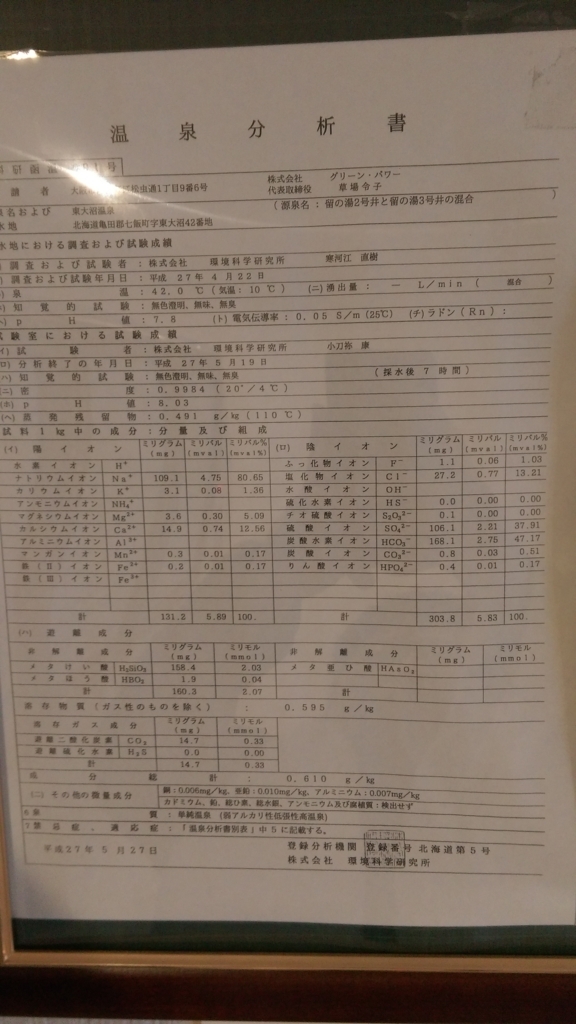 温泉分析書
株式会社 グリーン・パワー
請者 虫通1丁目9番6号 代表取締役 草場令子
名および 東大沼温泉 (源泉名:留の湯2号井と留の湯3号井の混合)
水地 北海道亀田郡七飯町字東大沼42番地
水地における調査および試験成績
調査および試験者:株式会社 環境科学研究所 寒河江 直樹
調査および試験年月日:平成 27年 4月22日
泉温:42.0℃(気温:10℃) (ニ)湧出量: ― L/min(混合)
知覚的試験:無色澄明、無味、無臭
pH値:7.8 (ト)電気伝導率:0.05 S/m(25℃) (チ)ラドン(Rn):
試験室における試験成績
(イ)試験者:株式会社 環境科学研究所 小刀祢 康
(ロ)分析終了の年月日:平成 27年 5月19日
(ハ)知覚的試験:無色澄明、無味、無臭 (採水後7時間)
(ニ)密度:0.9984 (20°/4℃)
(ホ)pH値:8.03
(ヘ)蒸発残留物:0.491 g/kg(110℃)
試料1kg中の成分:分量及び組成
(イ)陽イオン ミリグラム(mg) ミリバル(mval) ミリバル%(mval%) (ロ)陰イオン ミリグラム(mg) ミリバル(mval) ミリバル%(mval%)
水素イオン H⁺ ふっ化物イオン F⁻ 1.1 0.06 1.03
ナトリウムイオン Na⁺ 109.1 4.75 80.65 塩化物イオン Cl⁻ 27.2 0.77 13.21
カリウムイオン K⁺ 3.1 0.08 1.36 水酸イオン OH⁻
アンモニウムイオン NH₄⁺ 硫化水素イオン HS⁻ 0.0 0.00 0.00
マグネシウムイオン Mg²⁺ 3.6 0.30 5.09 チオ硫酸イオン S₂O₃²⁻ 0.1 0.00 0.00
カルシウムイオン Ca²⁺ 14.9 0.74 12.56 硫酸イオン SO₄²⁻ 106.1 2.21 37.91
アルミニウムイオン Al³⁺ 炭酸水素イオン HCO₃⁻ 168.1 2.75 47.17
マンガンイオン Mn²⁺ 0.3 0.01 0.17 炭酸イオン CO₃²⁻ 0.8 0.03 0.51
鉄(Ⅱ)イオン Fe²⁺ 0.2 0.01 0.17 りん酸イオン HPO₄²⁻ 0.4 0.01 0.17
鉄(Ⅲ)イオン Fe³⁺
計 131.2 5.89 100. 計 303.8 5.83 100.
(ハ)遊離成分
非解離成分 ミリグラム(mg) ミリモル(mmol) 非解離成分 ミリグラム(mg) ミリモル(mmol)
メタけい酸 H₂SiO₃ 158.4 2.03 メタ亜ひ酸 HAsO₂
メタほう酸 HBO₂ 1.9 0.04
計 160.3 2.07 計
溶存物質(ガス性のものを除く): 0.595 g/kg
溶存ガス成分 ミリグラム(mg) ミリモル(mmol)
遊離二酸化炭素 CO₂ 14.7 0.33
遊離硫化水素 H₂S 0.0 0.00
計 14.7 0.33
成分総計: 0.610 g/kg
(ニ)その他の微量成分 銅:0.006mg/kg、亜鉛:0.010mg/kg、アルミニウム:0.007mg/kg
カドミウム、鉛、総ひ素、総水銀、アンモニウム及び腐植質:検出せず
6泉質:単純温泉 (弱アルカリ性低張性高温泉)
7禁忌症、適応症:「温泉分析書別表」中5に記載する。
平成27年 5月27日 登録分析機関 登録番号 北海道第5号
株式会社 環境科学研究所